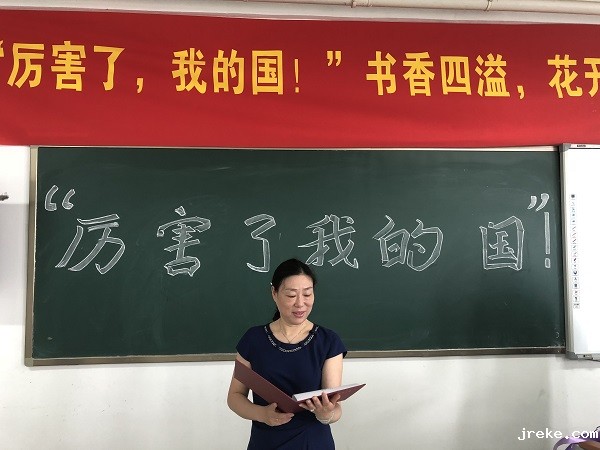 “厉害了，我的国！”书香四溢，花开
“厉害了我的国”！
jreke.com